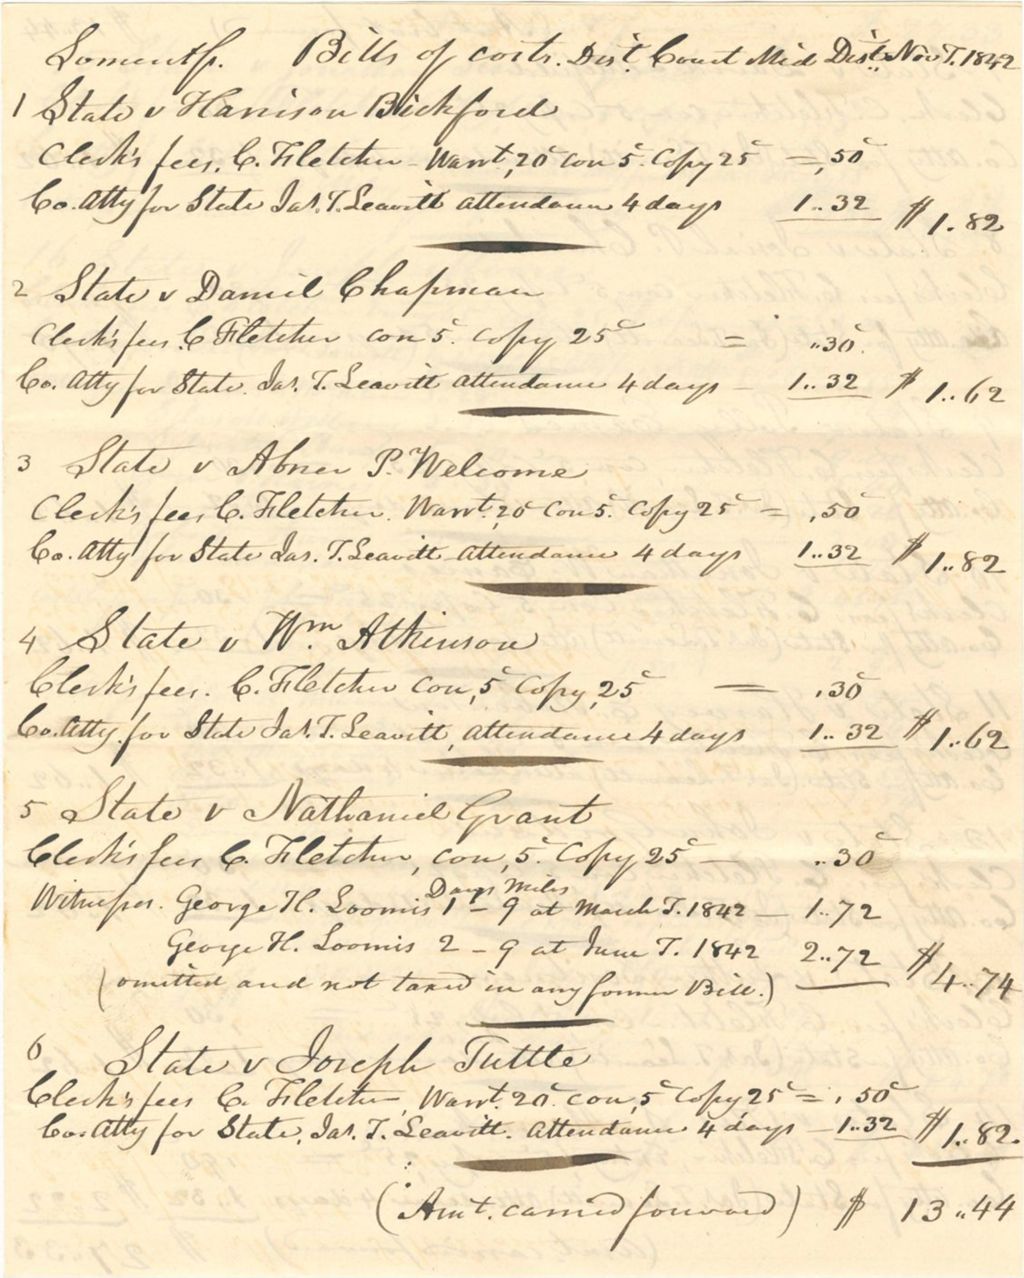 Somerset ss. Bills of costs. Dist. Court Mid Dist. Nov T. 1842
1 State v Harrison Bickford
Clerk's fees, C. Fletcher - Warrt. 20c con 5. Copy 25c = ,50c
Co. Atty for State Jas. T. Leavitt attendance 4 days 1..32 $1..82
2 State v Daniel Chapman
Clerk's fees. C Fletcher con 5c. copy 25c = ..30c
Co. Atty for State. Jas. T. Leavitt attendance 4 days - 1..32 $1..62
3 State v Abner P. Welcome
Clerk's fees, C. Fletcher. Warrt. 20c con 5. Copy 25c = ,50c
Co. Atty for State Jas. T. Leavitt attendance 4 days 1..32 $1..82
4 State v Wm. Atkinson
Clerk's fees. C. Fletcher con, 5c Copy, 25c = ,30c
Co. Atty. for State Jas. T. Leavitt, attendance 4 days 1..32 $1..62
5 State v Nathaniel Grant
Clerk's fees C. Fletcher, con, 5c. Copy 25c - ..30c
Days Miles
Witnesses. George H. Loomis 1 - 9 at March T. 1842 - 1..72
George H. Loomis 2 - 9 at June T. 1842 2..72 $4..74
(omitted and not taxed in any former Bill.)
6 State v Joseph Tuttle
Clerk's fees C. Fletcher, Warrt. 20c. con, 5c Copy 25c = , 50c
Co. Atty for State, Jas. T. Leavitt. Attendance 4 days - 1..32 $1..82.
(Amt. carried forward) $ 13..44